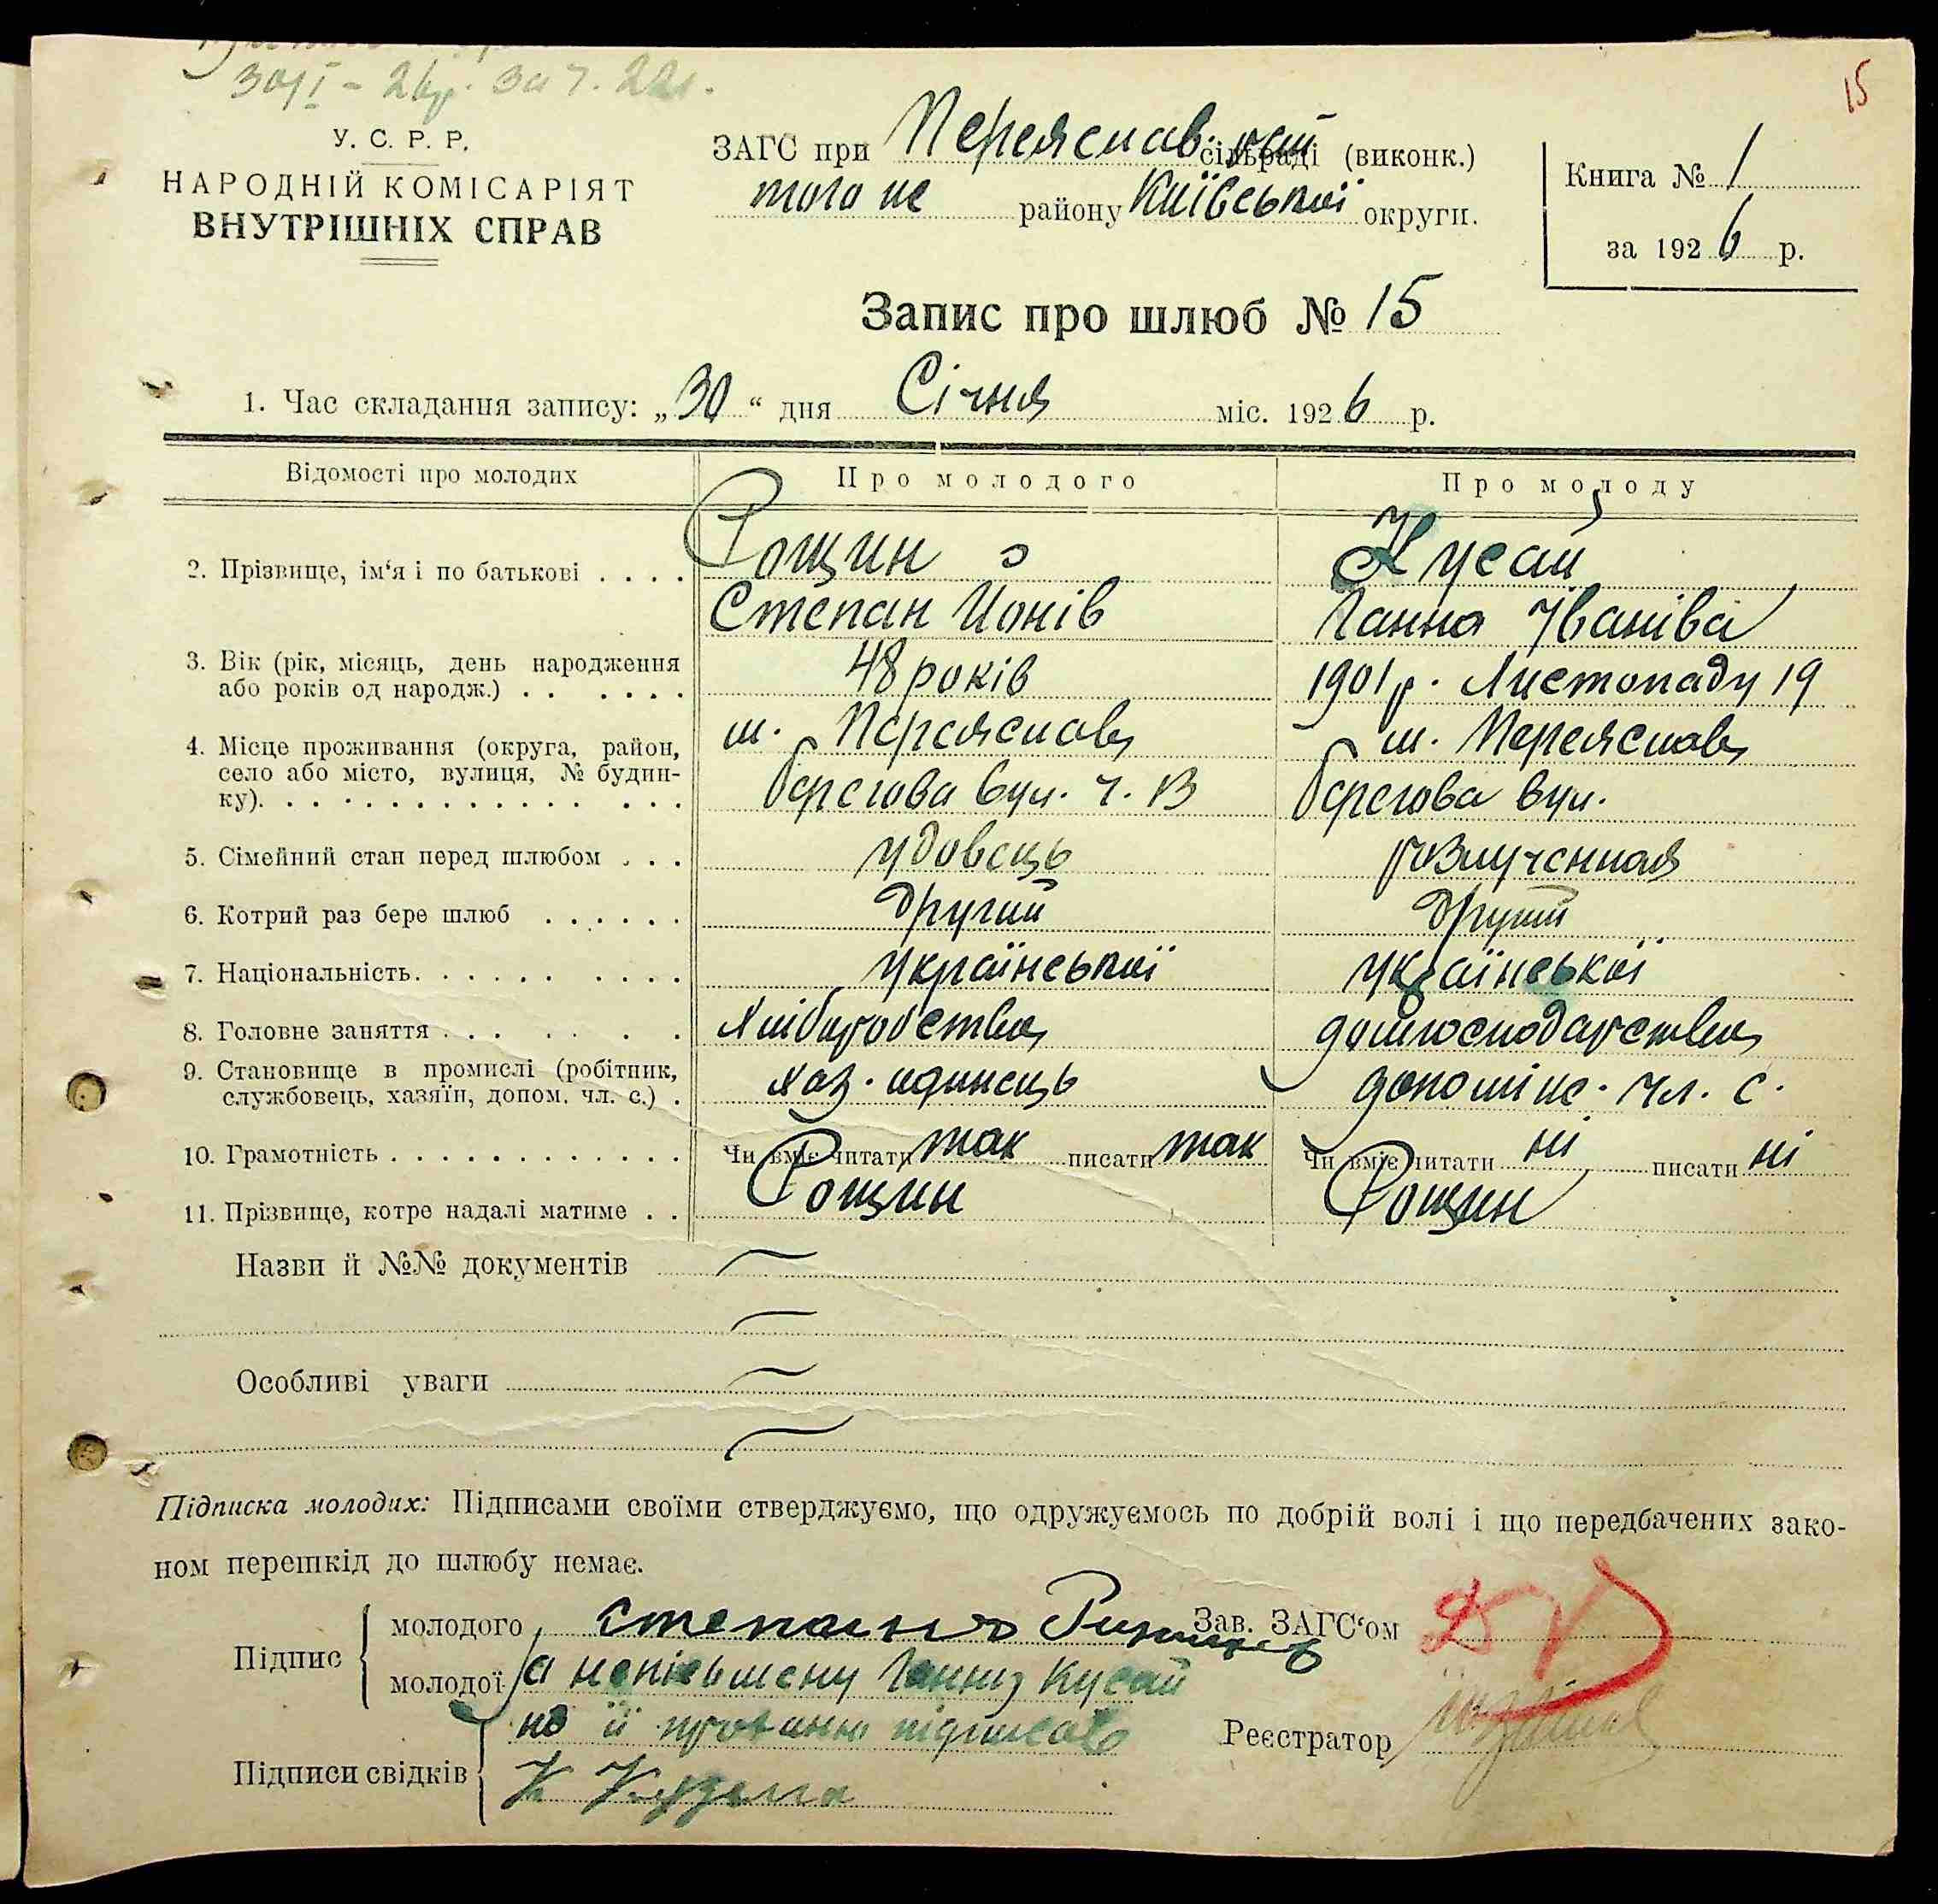 30/I - 2кр. за ч. 221.
15
У. С. Р. Р.
НАРОДНІЙ КОМІСАРІЯТ
ВНУТРІШНІХ СПРАВ
ЗАГС при Переяслав. рай сільраді (виконк.)
того же району Київської округи.
Книга № 1
за 1926 р.
Запис про шлюб № 15
1. Час складання запису: „30“ дня Січня міс. 1926 р.
Відомості про молодих Про молодого Про молоду
2. Прізвище, ім‘я і по батькові . . . . Рощин Кусай
Степан Йонів Ганна Іванівa
3. Вік (рік, місяць, день народження
або років од народж.) . . . . . . 48 років 1901 р. Листопаду 19
4. Місце проживання (округа, район,
село або місто, вулиця, № будин-
ку). . . . . . . . . . . . . . . .
м. Переяслав м. Переяслав
берегова вул. ч. 13 берегова вул.
5. Сімейний стан перед шлюбом . . . удовець розлученная
6. Котрий раз бере шлюб . . . . . . другий другий
7. Національність. . . . . . . . . . української української
8. Головне заняття . . . . . . . Хліборобство домгосподарство
9. Становище в промислі (робітник,
службовець, хазяїн, допом. чл. с.) . хаз. одинець допоміж. чл. с.
10. Грамотність . . . . . . . . . . . . Чи вміє читати так писати так Чи вміє читати ні писати ні
11. Прізвище, котре надалі матиме . . Рощин Рощин
Назви й №№ документів
Особливі уваги
Підписка молодих: Підписами своїми стверджуємо, що одружуємось по добрій волі і що передбачених зако-
ном перешкід до шлюбу немає.
Підпис
молодого Степанъ Зав. ЗАГС‘ом
молодої а неписьмену Ганну Кусай
по її прозанню підписав
Підписи свідків К
Реєстратор